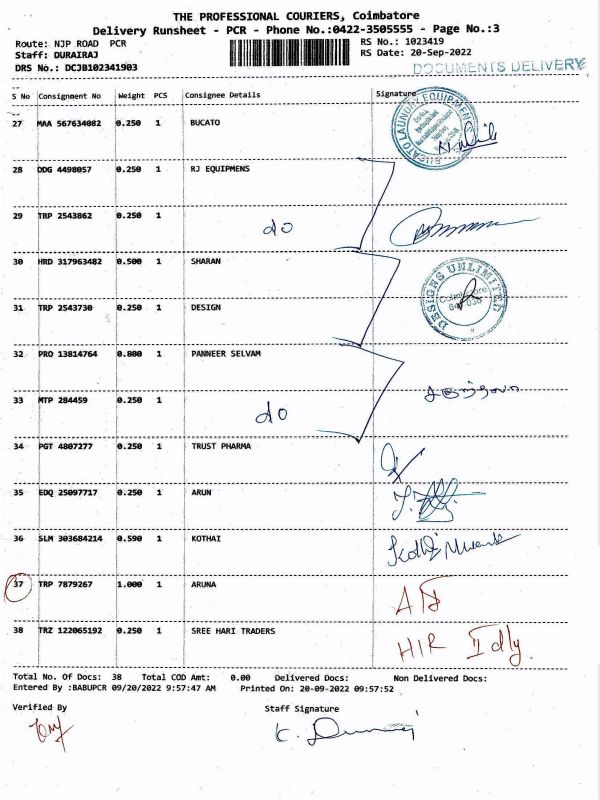 THE PROFESSIONAL COURIERS, Coimbatore
Delivery Runsheet - PCR - Phone No.:0422-3505555 - Page No.:3
Route: NJP ROAD PCR RS No.: 1023419
Staff: DURAIRAJ RS Date: 20-Sep-2022
DRS No.: DCJB102341903 DOCUMENTS DELIVERY
S No Consignment No Weight PCS Consignee Details Signature
27 MAA 567634082 0.250 1 BUCATO
BUCATO LAUNDRY EQUIPMENTS
28 DDG 4498057 0.250 1 RJ EQUIPMENS
29 TRP 2543862 0.250 1
do
30 HRD 317963482 0.500 1 SHARAN
DESIGNS UNLIMITED
31 TRP 2543730 0.250 1 DESIGN
32 PRO 13814764 0.800 1 PANNEER SELVAM
33 MTP 284459 0.250 1
do
34 PGT 4807277 0.250 1 TRUST PHARMA
35 EDQ 25097717 0.250 1 ARUN
36 SLM 303684214 0.590 1 KOTHAI
37 TRP 7879267 1.000 1 ARUNA
38 TRZ 122065192 0.250 1 SREE HARI TRADERS
HIR Idly
Total No. Of Docs: 38 Total COD Amt: 0.00 Delivered Docs: Non Delivered Docs:
Entered By :BABUPCR 09/20/2022 9:57:47 AM Printed On: 20-09-2022 09:57:52
Verified By Staff Signature